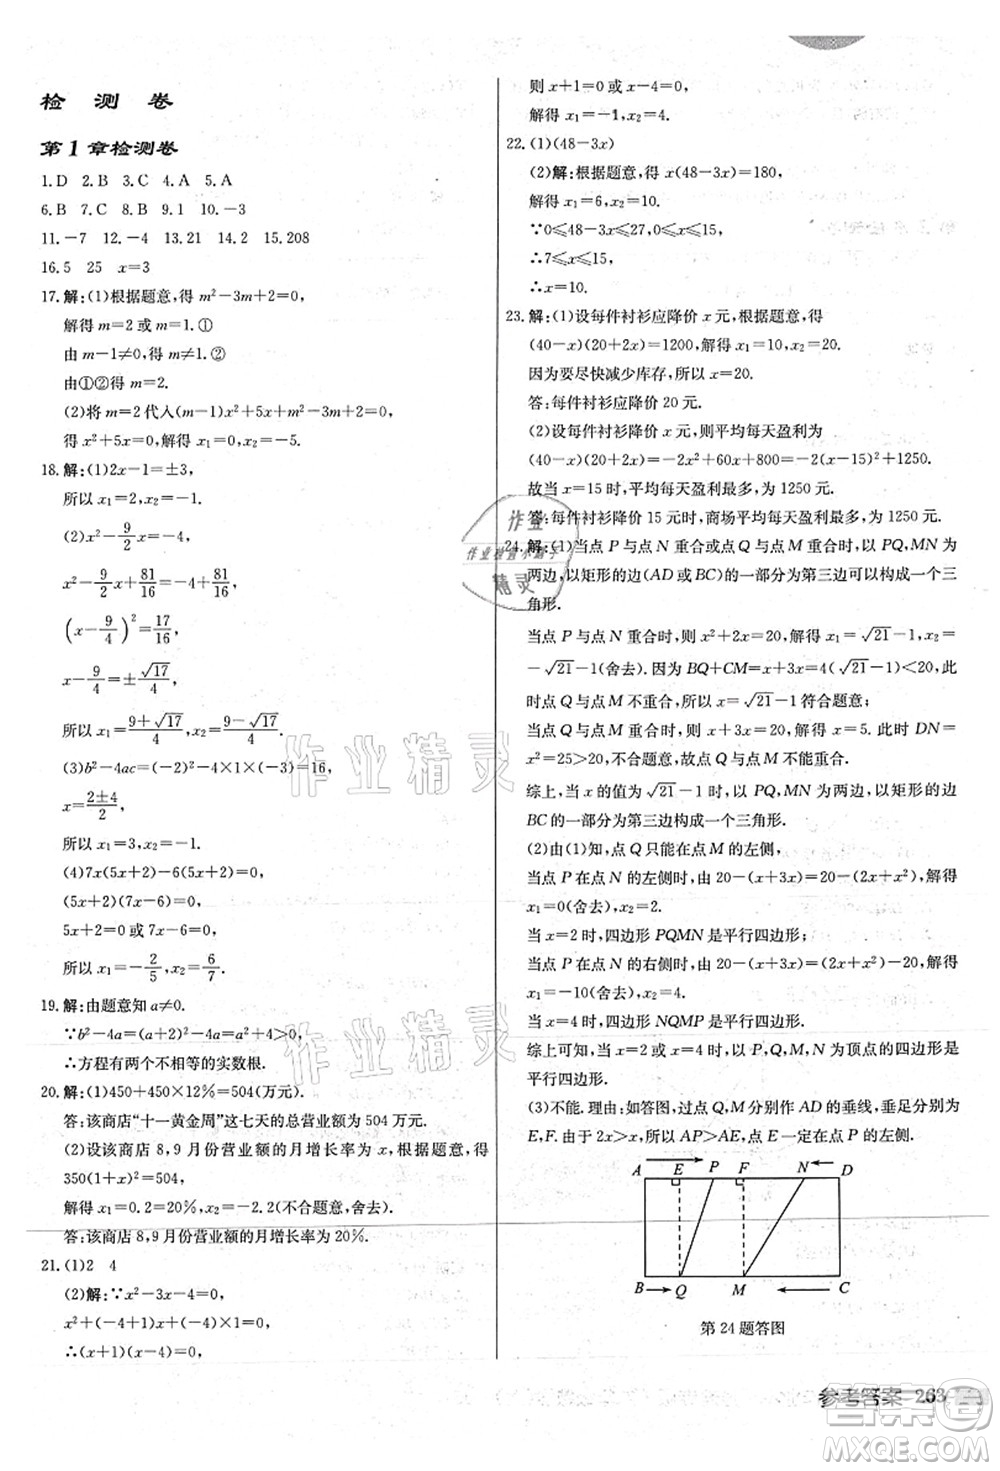 检 测 卷
第1章检测卷
1.D 2.B 3.C 4.A 5.A
6.B 7.C 8.B 9.1 10.-3
11.-7 12.-4 13.21 14.2 15.208
16.5 25 x=3
17.解:(1)根据题意,得 m²-3m+2=0,
解得 m=2 或 m=1.①
由 m-1≠0,得 m≠1.②
由①②得 m=2.
(2)将 m=2 代入(m-1)x²+5x+m²-3m+2=0,
得 x²+5x=0,解得 x₁=0,x₂=-5.
18.解:(1)2x-1=±3,
所以 x₁=2,x₂=-1.
(2)x²-9/2x=-4,
x²-9/2x+81/16=-4+81/16,
(x-9/4)²=17/16,
x-9/4=±√17/4,
所以 x₁=(9+√17)/4,x₂=(9-√17)/4.
(3)b²-4ac=(-2)²-4×1×(-3)=16,
x=(2±4)/2,
所以 x₁=3,x₂=-1.
(4)7x(5x+2)-6(5x+2)=0,
(5x+2)(7x-6)=0,
5x+2=0 或 7x-6=0,
所以 x₁=-2/5,x₂=6/7.
19.解:由题意知 a≠0.
∵b²-4a=(a+2)²-4a=a²+4>0,
∴方程有两个不相等的实数根.
20.解:(1)450+450×12%=504(万元).
答:该商店“十一黄金周”这七天的总营业额为 504 万元.
(2)设该商店 8,9 月份营业额的月增长率为 x,依题意,得
350(1+x)²=504,
解得 x₁=0.2=20%,x₂=-2.2(不合题意,舍去).
答:该商店 8,9 月份营业额的月增长率为 20%.
21.(1)2 4
(2)解:∵x²-3x-4=0,
x²+(-4+1)x+(-4)×1=0,
∴(x+1)(x-4)=0,
则 x+1=0 或 x-4=0,
解得 x₁=-1,x₂=4.
22.(1)(48-3x)
(2)解:根据题意,得 x(48-3x)=180,
解得 x₁=6,x₂=10.
∵0≤48-3x≤27,0≤x≤15,
∴7≤x≤15,
∴x=10.
23.解:(1)设每件衬衫应降价 x 元,根据题意,得
(40-x)(20+2x)=1200,解得 x₁=10,x₂=20.
因为要尽快减少库存,所以 x=20.
答:每件衬衫应降价 20 元.
(2)设每件衬衫降价 x 元,则平均每天盈利为
(40-x)(20+2x)=-2x²+60x+800=-2(x-15)²+1250.
故当 x=15 时,平均每天盈利最多,为 1250 元.
答:每件衬衫降价 15 元时,商场平均每天盈利最多,为 1250 元.
24.解:(1)当点 P 与点 N 重合或点 Q 与点 M 重合时,以 PQ,MN 为
两边,以矩形的边(AD 或 BC)的一部分为第三边可以构成一个三
角形.
当点 P 与点 N 重合时,则 x²+2x=20,解得 x₁=√21-1,x₂=
-√21-1(舍去). 因为 BQ+CM=x+3x=4(√21-1)<20,此
时点 Q 与点 M 不重合,所以 x=√21-1 符合题意;
当点 Q 与点 M 重合时,则 x+3x=20,解得 x=5.此时 DN=
x²=25>20,不合题意,故点 Q 与点 M 不能重合.
综上,当 x 的值为 √21-1 时,以 PQ,MN 为两边,以矩形的边
BC 的一部分为第三边构成一个三角形.
(2)由(1)知,点 Q 只能在点 M 的左侧,
当点 P 在点 N 的左侧时,由 20-(x+3x)=20-(2x+x²),解得
x₁=0(舍去),x₂=2.
当 x=2 时,四边形 PQMN 是平行四边形;
当点 P 在点 N 的右侧时,由 20-(x+3x)=(2x+x²)-20,解得
x₁=-10(舍去),x₂=4.
当 x=4 时,四边形 NQMP 是平行四边形.
综上可知,当 x=2 或 x=4 时,以 P,Q,M,N 为顶点的四边形是
平行四边形.
(3)不能. 理由:如答图,过点 Q,M 分别作 AD 的垂线,垂足分别为
E,F. 由于 2x>x,所以 AP>AE,点 E 一定在点 P 的左侧.
A E P F N D
B Q M C
第 24 题答图
参考答案 263
作业
作业检查小助手
精灵
作业精灵
作业精灵
答案圈
MXQE.COM